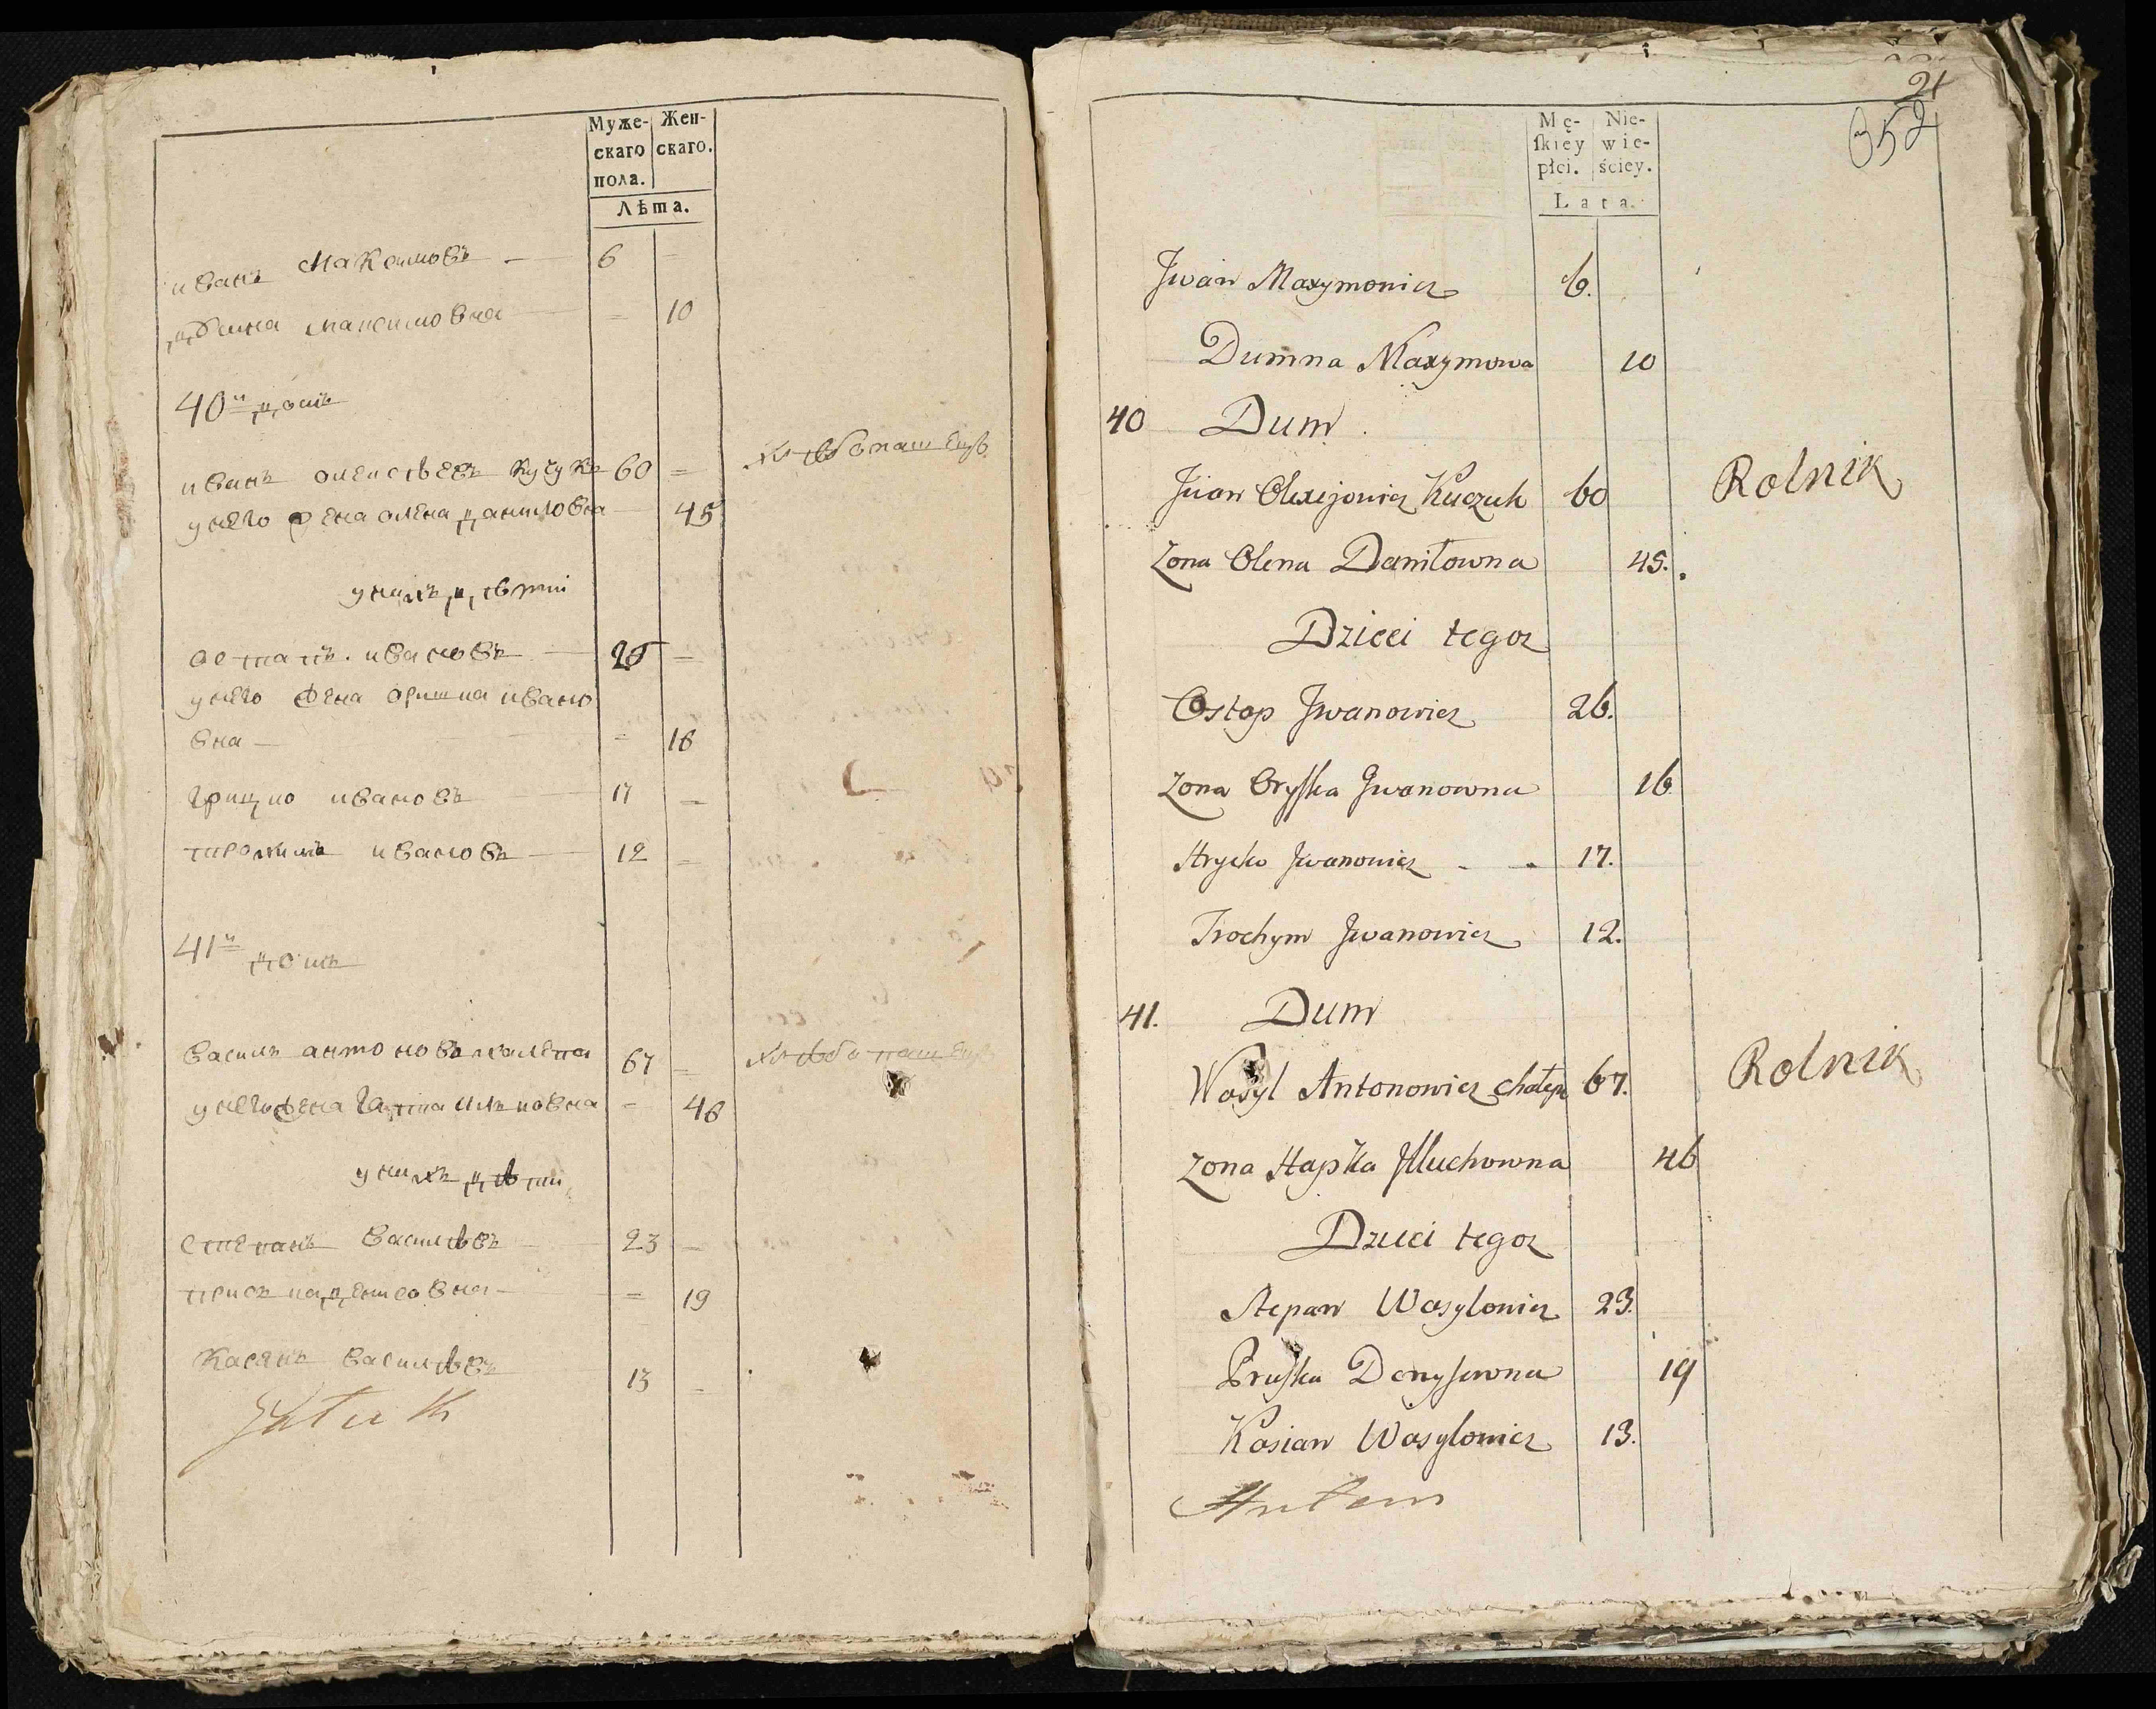 Муже-
скаго
пола.
Жен-
скаго.
Лѣта.
иванъ Макsимовъ 6 —
домна максимовна = 10
40й домъ
иванъ олексѣевъ кучукъ 60 = хлѣбопашецъ
унего жена олена даниловна 45
унихъ дѣти
остапъ ивановъ 26 —
унего жена оришка ивано
вна — = 16
грицко ивановъ 17 —
трохимъ ивановъ 12 —
41й домъ
василь антоновъ халепа 67 — хлѣбопашецъ
унего жена гапка — 46
унихъ дѣти
степанъ василѣвъ 23 —
приська денисовна = 19
касянъ василѣвъ 13 —
21
352
Mę-
ſkiey
płci.
Nie-
wie-
ściey.
Lata.
Jwan Maxymowicz 6.
Dumna Maxymowa 10
40 Dum
Jwan Olexijowicz Kuczuk 60 Rolnik
Zona Olena Daniłowna 45.
Dzieci tegoz
Ostap Jwanowicz 26.
Zona Oryſka Jwanowna 16
Hrycko Jwanowicz - - 17.
Trochym Jwanowicz 12.
41. Dum
Wasyl Antonowicz Chałepa 67. Rolnik
Zona Hapka 46
Dzieci tegoz
Stepan Wasylowicz 23.
Pruſka Denyſowna 19
Kasian Wasylowicz 13.